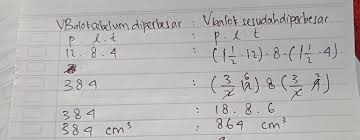 VBalok sebelum diperbesar : Vbalok sesudah diperbesar
p . l . t : p . l . t
12 . 8 . 4 : (1 1/2 . 12) . 8 . (1 1/2 . 4)
384 : (3/2 12 6) 8 (3/2 4 2)
384 : 18 . 8 . 6
384 cm³ : 864 cm³